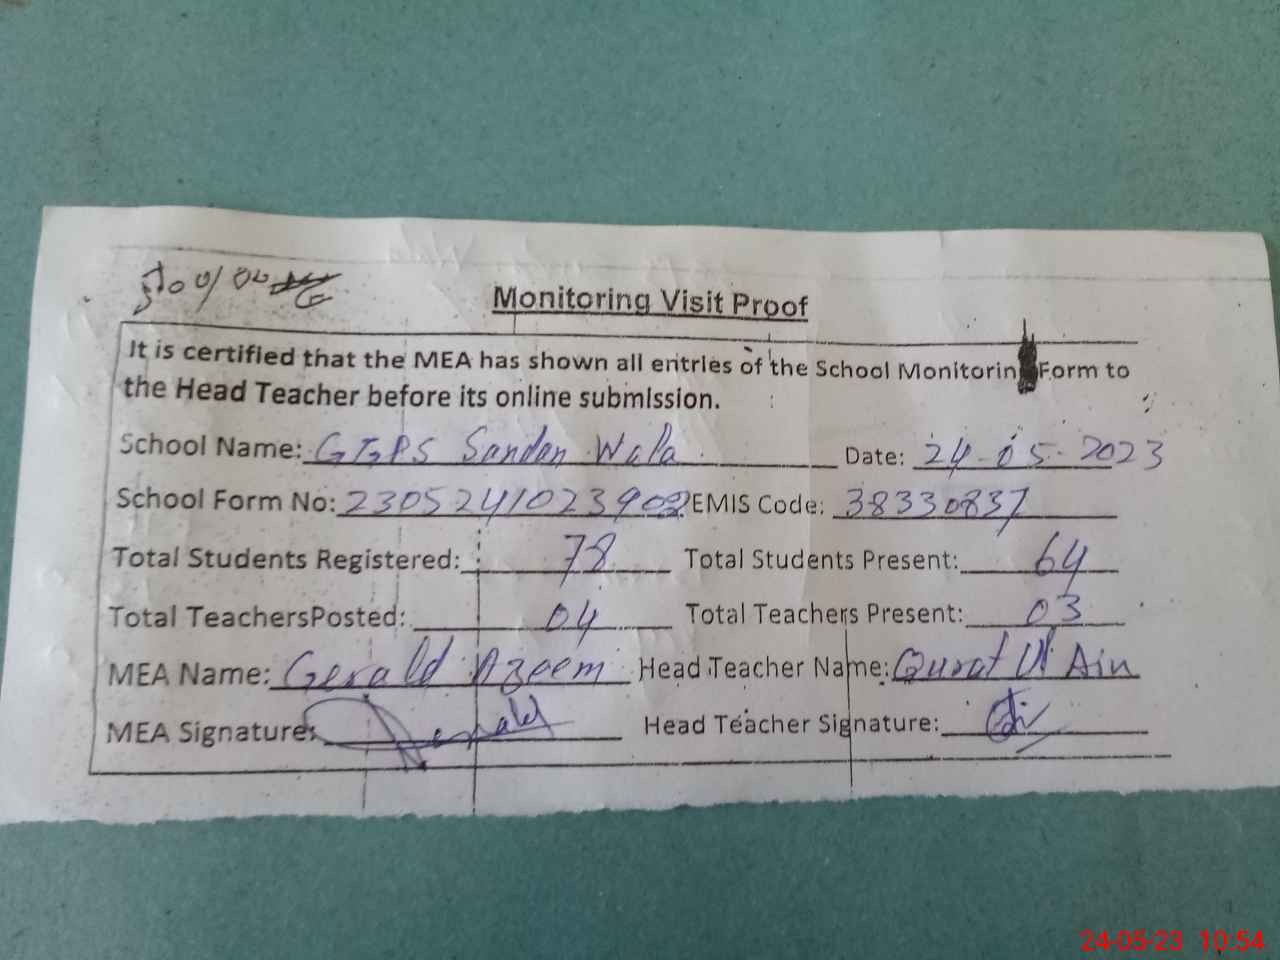 Monitoring Visit Proof
It is certified that the MEA has shown all entries of the School Monitorin Form to
the Head Teacher before its online submission.
School Name: GGPS Sandan Wala Date: 24-05-2023
School Form No: 2305241023902 EMIS Code: 38330837
Total Students Registered: 78 Total Students Present: 64
Total TeachersPosted: 04 Total Teachers Present: 03
MEA Name: Gerald Azeem Head Teacher Name: Qurat Ul Ain
MEA Signature: Head Teacher Signature:
24-05-23 10:54